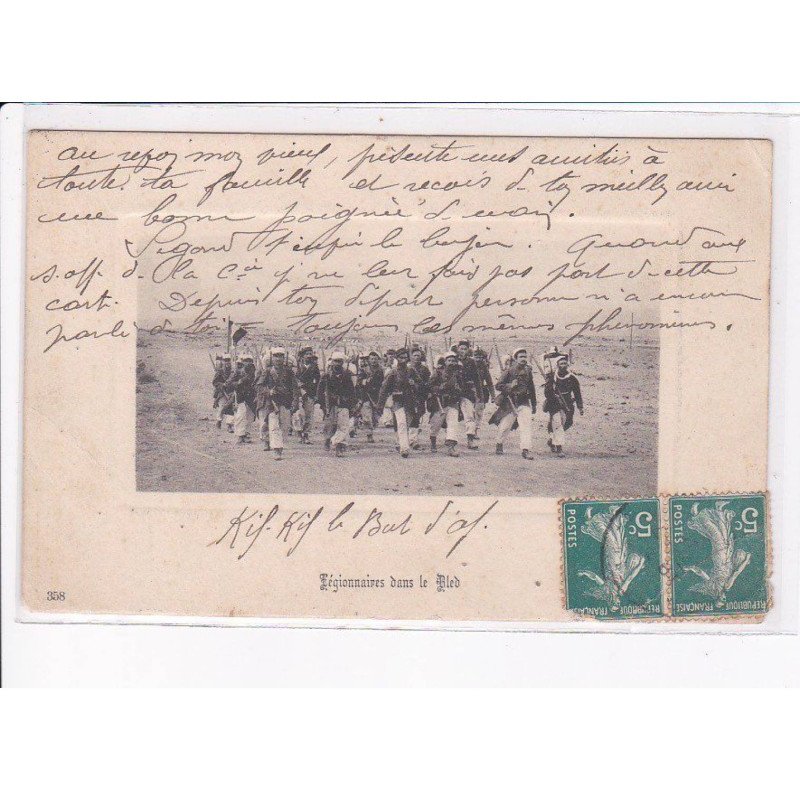 au revoy moy vieux, présente mes amitiés à
toute ta famille et recois de toy meilly ami
une bonne poignée de main.
Quand aux
s. off. de la Cie y ne leur fais pas part de cette
cart. Depuis toy départ personne n'a encore
parlé de toi toujours les mêmes phenomènes.
Kif-Kif le Bat d'af.
Légionnaires dans le Bled
358
5c POSTES REPUBLIQUE FRANÇAISE
5c POSTES REPUBLIQUE FRANÇAISE